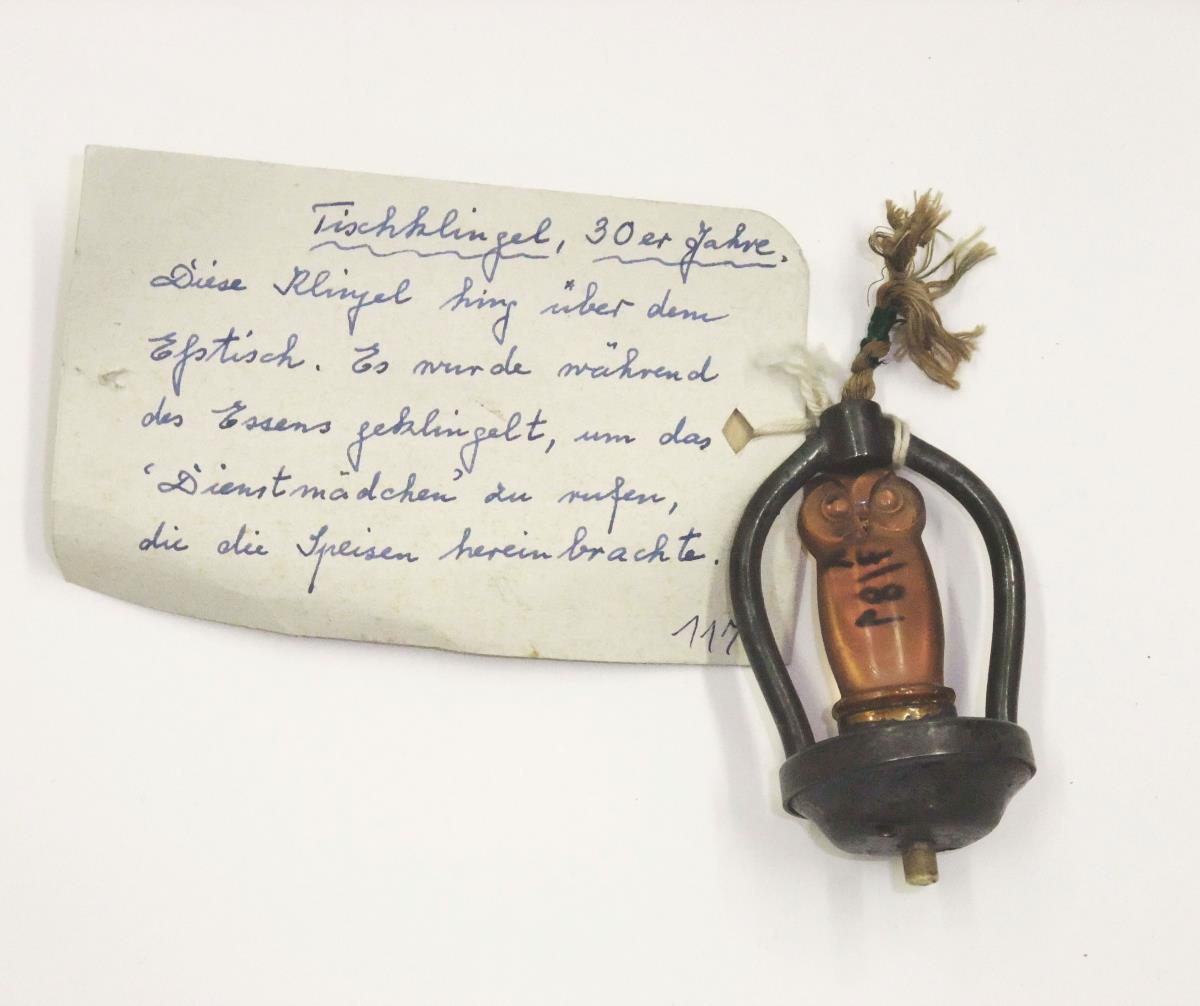 Tischklingel, 30er Jahre.
Diese Klingel hing über dem
Eßtisch. Es wurde während
des Essens geklingelt, um das
'Dienstmädchen' zu rufen,
die die Speisen hereinbrachte.
117